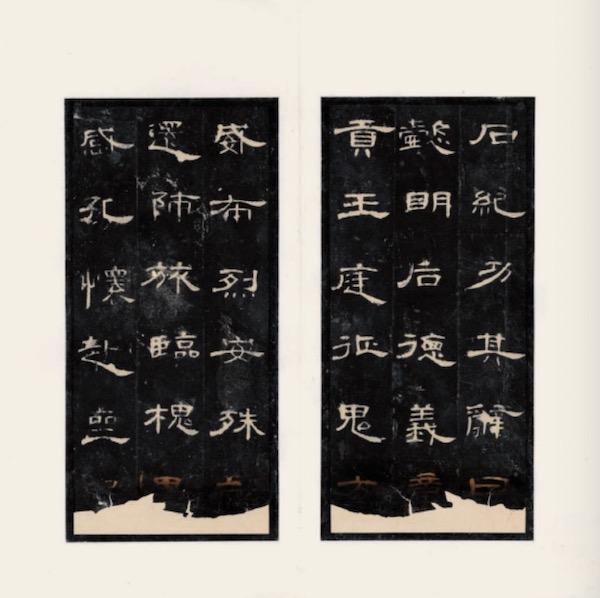 石紀功其辭曰
懿明后德義章
貢王庭征鬼方
威布烈安殊
還師旅臨槐里
感孔懷赴喪